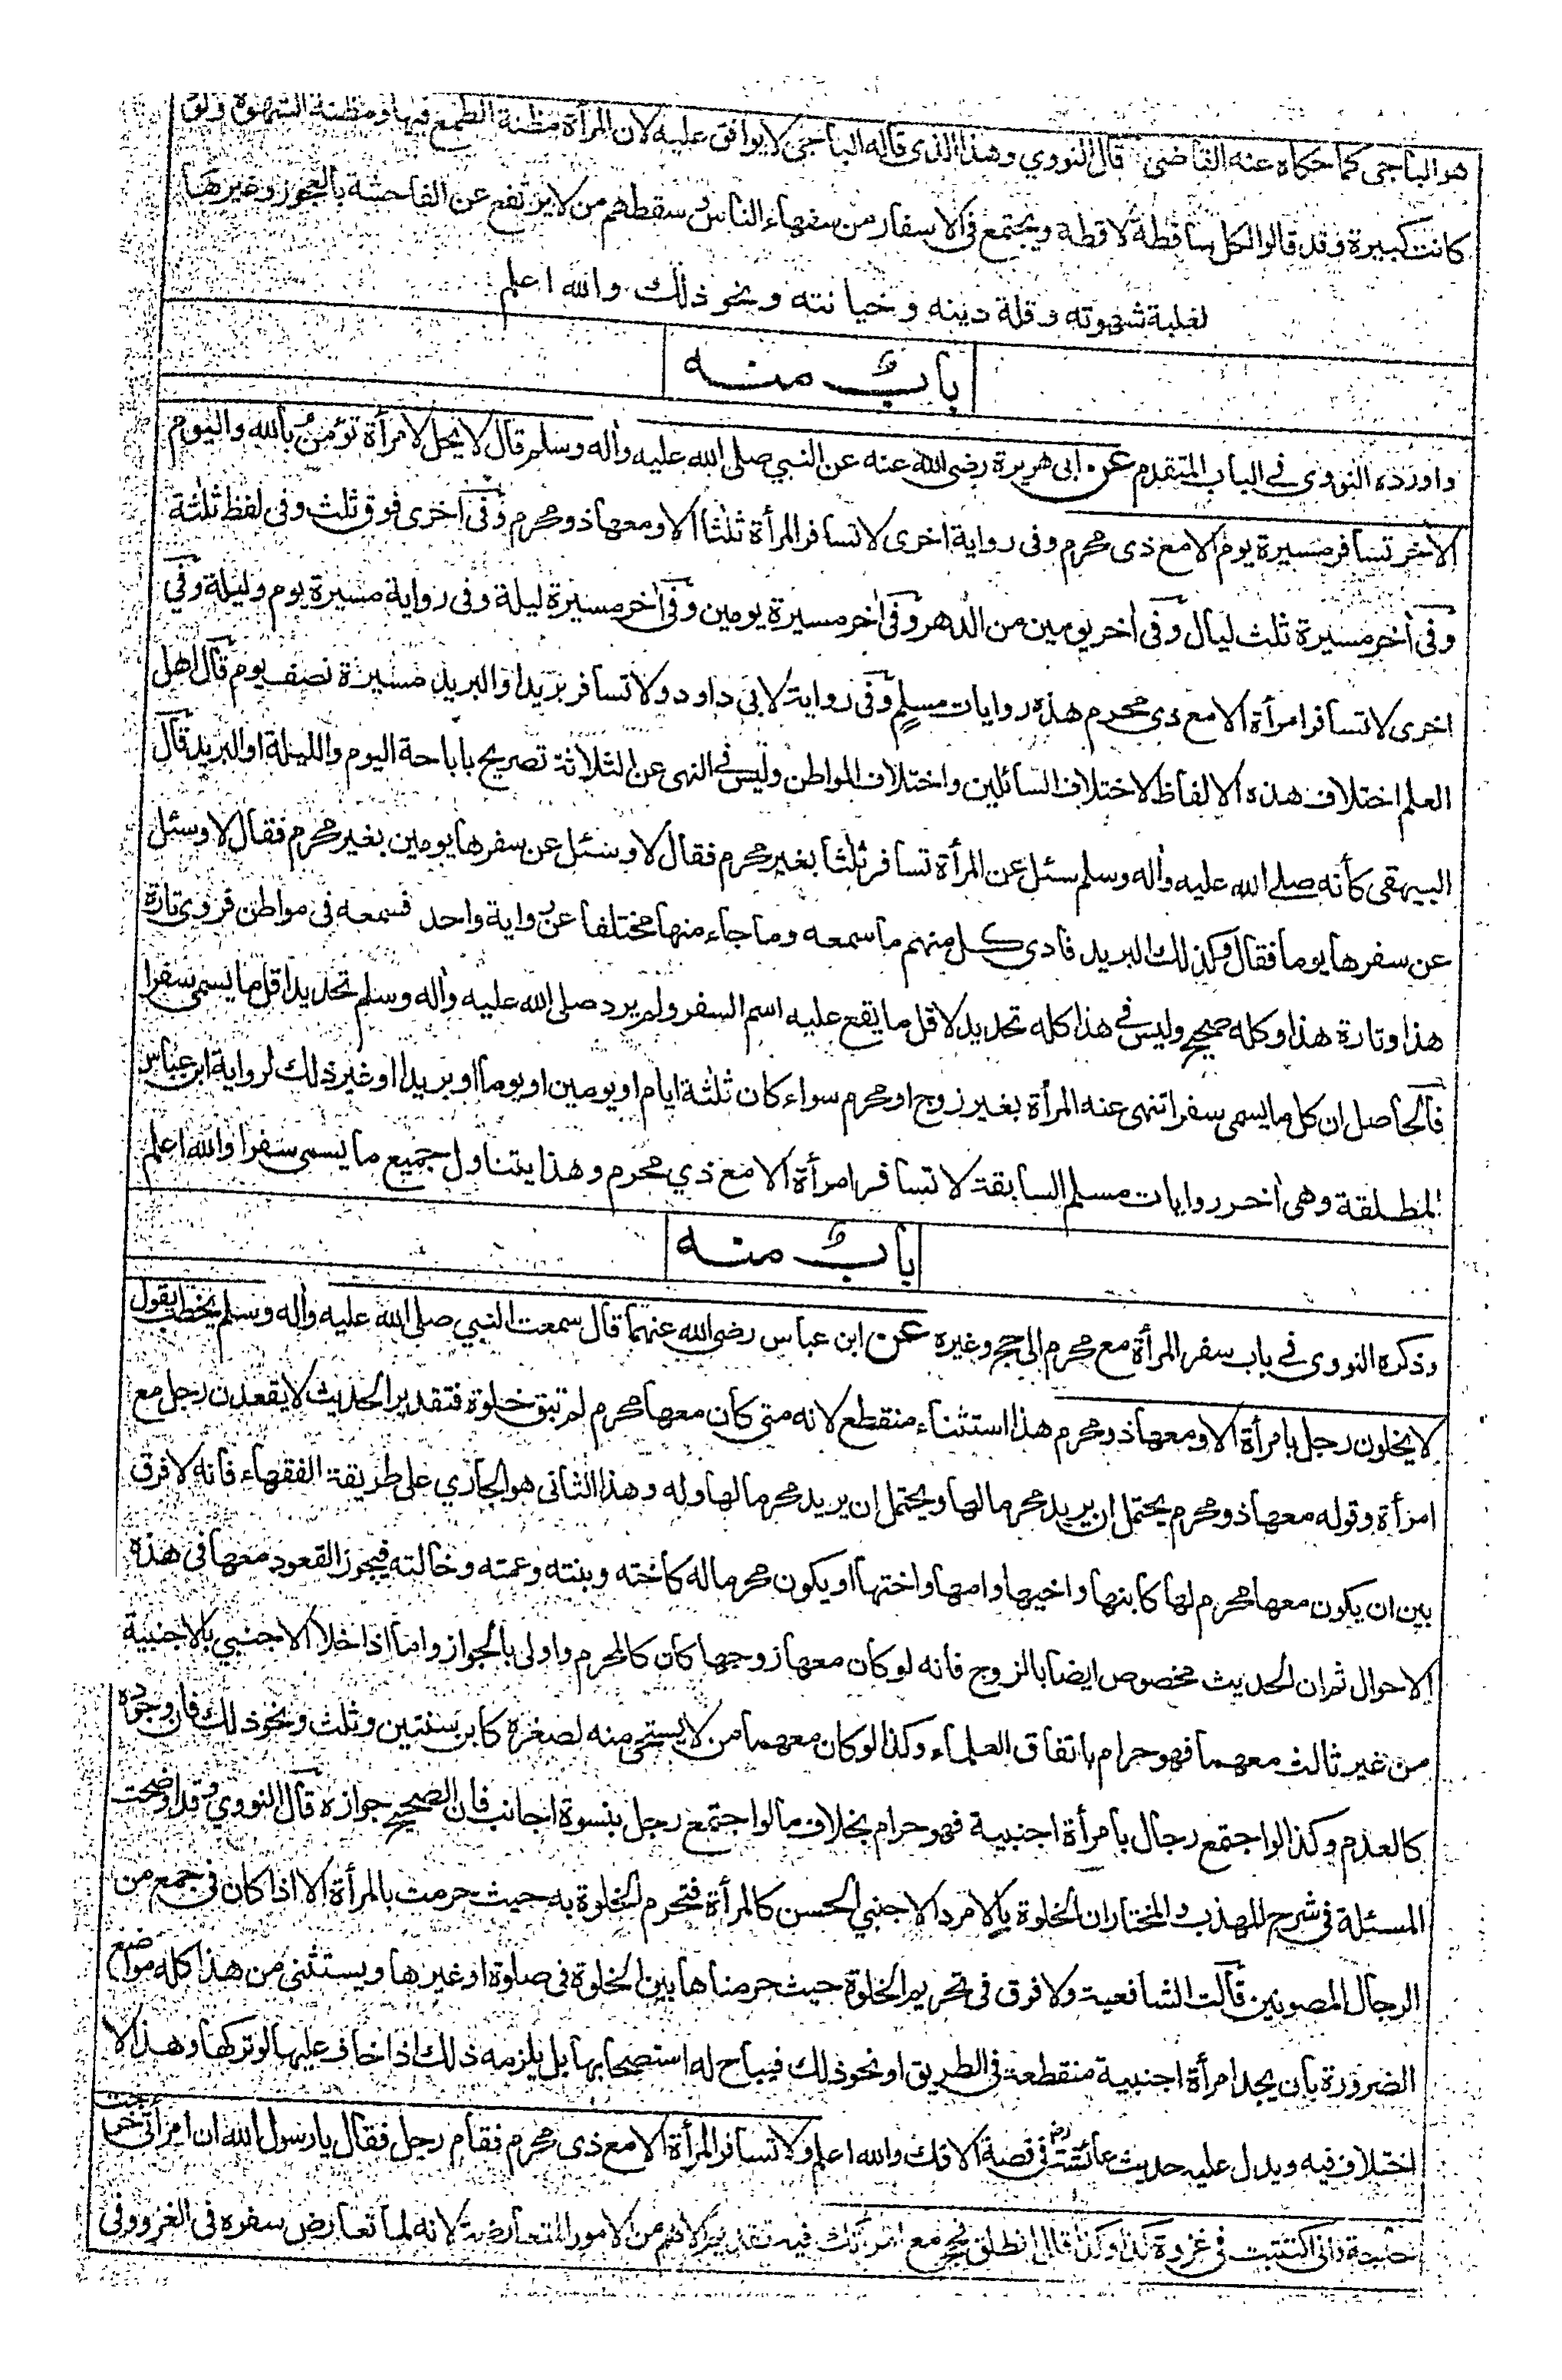 هو الباجى كما حكاه عنه القاضى قال النووي وهذا الذى قاله الباجى لا يوافق عليه لان المرأة مظنة الطمع فيها ومظنة الشهوة ولو
كانت كبيرة وقد قالوا لكل ساقطة لاقطة ويجتمع فى الاسفار من سفهاء الناس وسقطهم من لا يرتفع عن الفاحشة بالعجوز وغيرها
لغلبة شهوته وقلة دينه وخيانته ونحو ذلك والله اعلم
باب منه
واورده النووى فے الباب المتقدم عن ابى هريرة رضى الله عنه عن النبي صلى الله عليه واٰله وسلم قال لا يحل لامرأة تؤمن بالله واليوم
الاٰخر تسافر مسيرة يوم الا مع ذى محرم وفى رواية اخرى لا تسافر المرأة ثلٰثا الا ومعها ذو محرم وفى اخرى فوق ثلث وفى لفظ ثلٰثة
وفى اٰخر مسيرة ثلث ليال وفى اٰخر يومين من الدهر وفى اٰخر مسيرة يومين وفى اٰخر مسيرة ليلة وفى رواية مسيرة يوم وليلة وفي
اخرى لا تسافر امرأة الا مع ذى محرم هذه روايات مسلم وفى رواية لابى داود ولا تسافر بريدا والبريد مسيرة نصف يوم قال اهل
العلم اختلاف هذه الالفاظ لاختلاف السائلين واختلاف المواطن وليس فے النهى عن الثلاثة تصريح باباحة اليوم والليلة او البريد قال
البيهقى كأنه صلے الله عليه واٰله وسلم سئل عن المرأة تسافر ثلٰثا بغير محرم فقال لا وسئل عن سفرها يومين بغير محرم فقال لا وسئل
عن سفرها يوما فقال لا وكذلك البريد فادى كل منهم ما سمعه وما جاء منها مختلفا عن رواية واحد فسمعه فى مواطن فروى تارة
هذا وتارة هذا وكله صحيح وليس فے هذا كله تحديد لاقل ما يقع عليه اسم السفر ولم يرد صلى الله عليه واٰله وسلم تحديد اقل ما يسمى سفرا
فالحاصل ان كل ما يسمى سفرا تنهى عنه المرأة بغير زوج او محرم سواء كان ثلٰثة ايام او يومين او يوما او بريدا او غير ذلك لرواية ابن عباس
المطلقة وهى اٰخر روايات مسلم السابقة لا تسافر امرأة الا مع ذي محرم وهذا يتناول جميع ما يسمى سفرا والله اعلم
باب منه
وذكره النووى فے باب سفر المرأة مع محرم الى حج وغيره عن ابن عباس رضى الله عنهما قال سمعت النبي صلى الله عليه واٰله وسلم يخطب يقول
لا يخلون رجل بامرأة الا ومعها ذو محرم هذا استثناء منقطع لانه متى كان معها محرم لم تبق خلوة فتقدير الحديث لا يقعدن رجل مع
امرأة وقوله معها ذو محرم يحتمل ان يريد محرما لها ويحتمل ان يريد محرما لها وله وهذا الثانى هو الجاري على طريقة الفقهاء فانه لا فرق
بين ان يكون معها محرم لها كابنها واخيها وامها واختها او يكون محرما له كاخته وبنته وعمته وخالته فيجوز القعود معها فى هذه
الاحوال ثم ان الحديث مخصوص ايضا بالزوج فانه لو كان معها زوجها كان كالمحرم واولى بالجواز واما اذا خلا الاجنبي بالاجنبية
من غير ثالث معهما فهو حرام باتفاق العلماء وكذا لو كان معهما من لا يستحى منه لصغره كابن سنتين وثلث ونحو ذلك فان وجوده
كالعدم وكذا لو اجتمع رجال بامرأة اجنبية فهو حرام بخلاف ما لو اجتمع رجل بنسوة اجانب فان الصحيح جوازه قال النووي وقد اوضحت
المسئلة فى شرح المهذب والمختار ان الخلوة بالامرد الاجنبي الحسن كالمرأة فتحرم الخلوة به حيث حرمت بالمرأة الا اذا كان فى جمع من
الرجال المصونين قالت الشافعية ولا فرق فى تحريم الخلوة حيث حرمناها بين الخلوة فى صلوة او غيرها ويستثنى من هذا كله مواضع
الضرورة بان يجد امرأة اجنبية منقطعة فى الطريق او نحو ذلك فيباح له استصحابها بل يلزمه ذلك اذا خاف عليها لو تركها وهذا لا
اختلاف فيه ويدل عليه حديث عائشة رض فى قصة الافك والله اعلم ولا تسافر المرأة الا مع ذى محرم فقام رجل فقال يا رسول الله ان امرأتى خرجت
حاجة وانى اكتتبت فى غزوة كذا وكذا قال انطلق فحج مع امرأتك فيه تقديم الاهم من الامور المتعارضة لانه لما تعارض سفره فى الغزو وفى